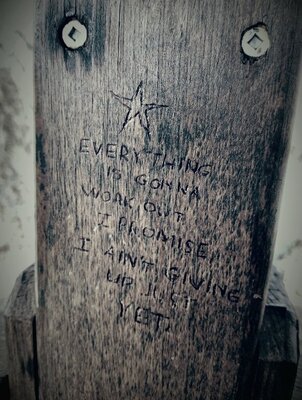 EVERYTHING
IS GONNA
WORK OUT
I PROMISE
I AIN'T GIVING
UP JUST
YET.